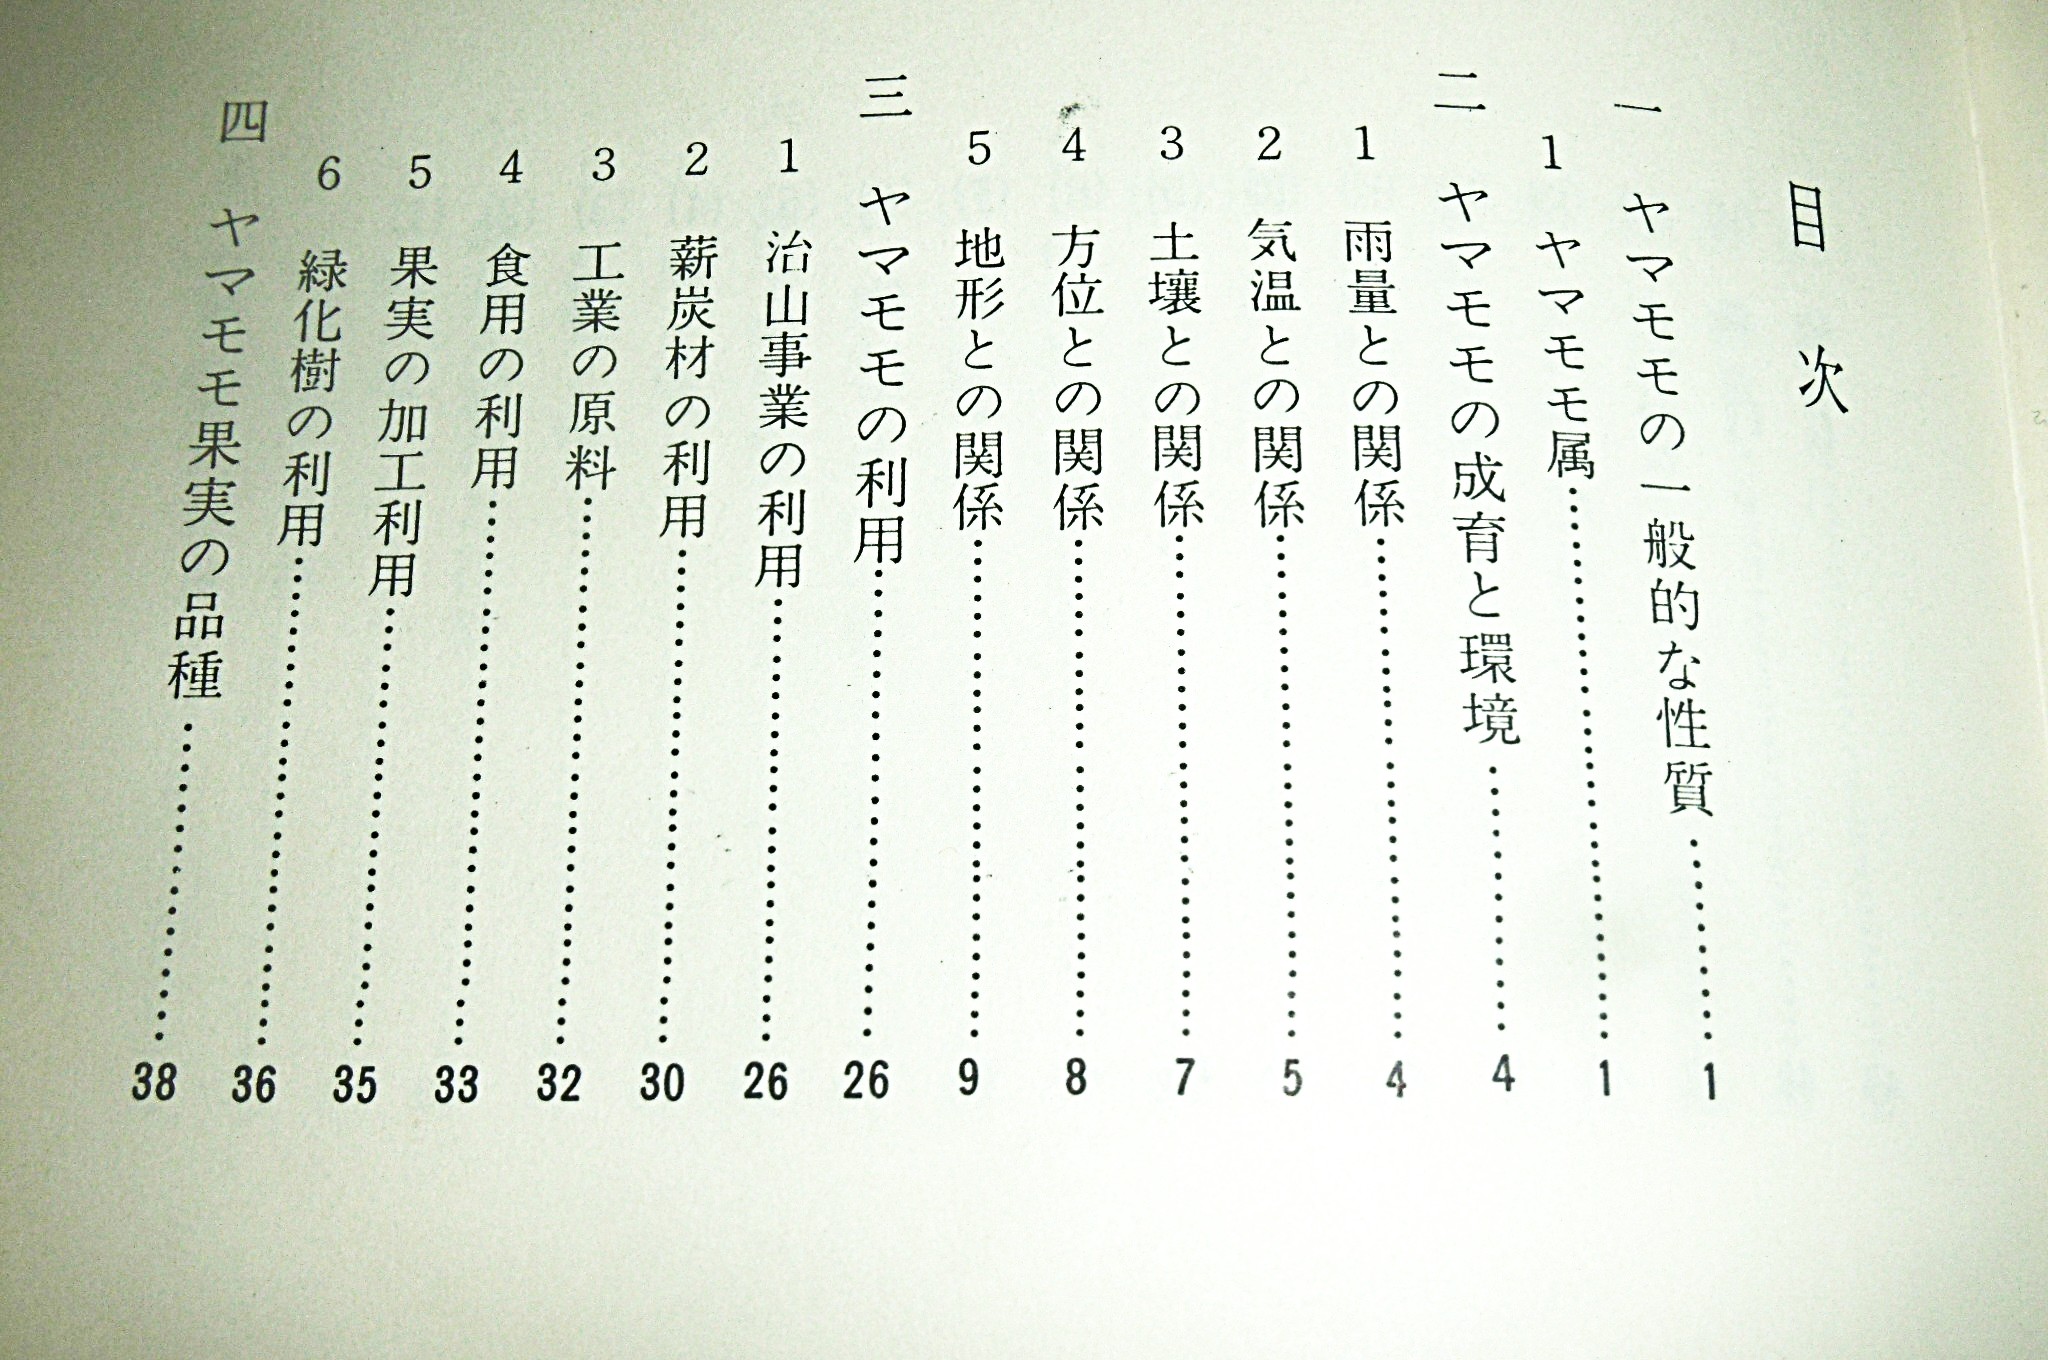 目次
一 ヤマモモの一般的な性質……………1
1 ヤマモモ属……………1
二 ヤマモモの成育と環境……………4
1 雨量との関係……………4
2 気温との関係……………5
3 土壌との関係……………7
4 方位との関係……………8
5 地形との関係……………9
三 ヤマモモの利用……………26
1 治山事業の利用……………26
2 薪炭材の利用……………30
3 工業の原料……………32
4 食用の利用……………33
5 果実の加工利用……………35
6 緑化樹の利用……………36
四 ヤマモモ果実の品種……………38